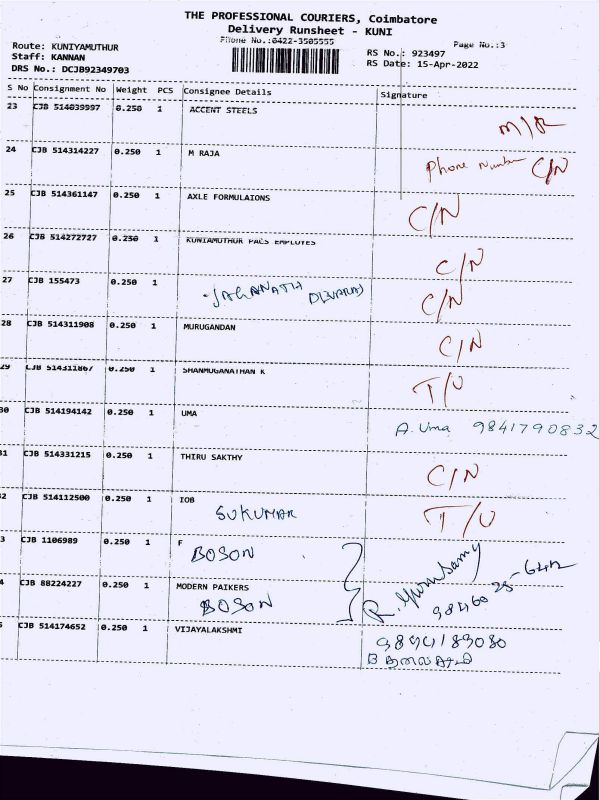 THE PROFESSIONAL COURIERS, Coimbatore
Delivery Runsheet - KUNI
Phone No.:0422-3505555
Page No.:3
Route: KUNIYAMUTHUR
Staff: KANNAN
DRS No.: DCJB92349703
RS No.: 923497
RS Date: 15-Apr-2022
S No Consignment No Weight PCS Consignee Details Signature
23 CJB 514039997 0.250 1 ACCENT STEELS M/R
24 CJB 514314227 0.250 1 M RAJA Phone Number C/N
25 CJB 514361147 0.250 1 AXLE FORMULAIONS C/N
26 CJB 514272727 0.250 1 KUNIAMUTHUR PACS EMPLOYES C/N
27 CJB 155473 0.250 1 C/N
28 CJB 514311908 0.250 1 MURUGANDAN C/N
29 CJB 514311867 0.250 1 SHANMUGANATHAN K T/U
30 CJB 514194142 0.250 1 UMA A. Uma 9841790832
31 CJB 514331215 0.250 1 THIRU SAKTHY C/N
2 CJB 514112500 0.250 1 IOB SUKUMAR T/U
3 CJB 1106989 0.250 1 F BOSON
4 CJB 88224227 0.250 1 MODERN PAIKERS BOSON
5 CJB 514174652 0.250 1 VIJAYALAKSHMI